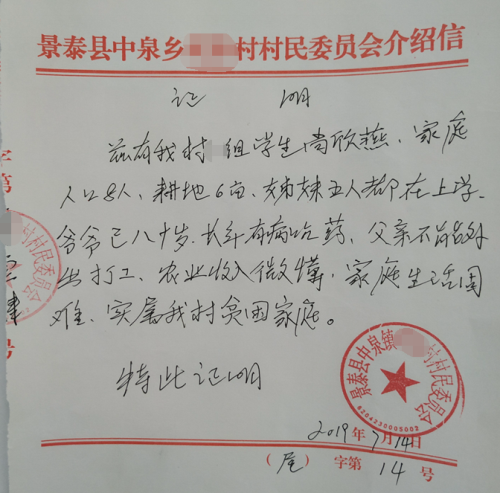 景泰县中泉乡 村村民委员会介绍信
证 明
兹有我村 组学生尚欣燕、家庭
人口8人、耕地6亩、姊妹五人都在上学、
爷爷已八十岁、长年有病吃药、父亲不能
出打工、农业收入微薄、家庭生活困
难、实属我村贫困家庭。
特此证明
景泰县中泉镇 村村民委员会
6204230005002
2019年7月14日
(尾) 字第14号
字第
号
村民委员会